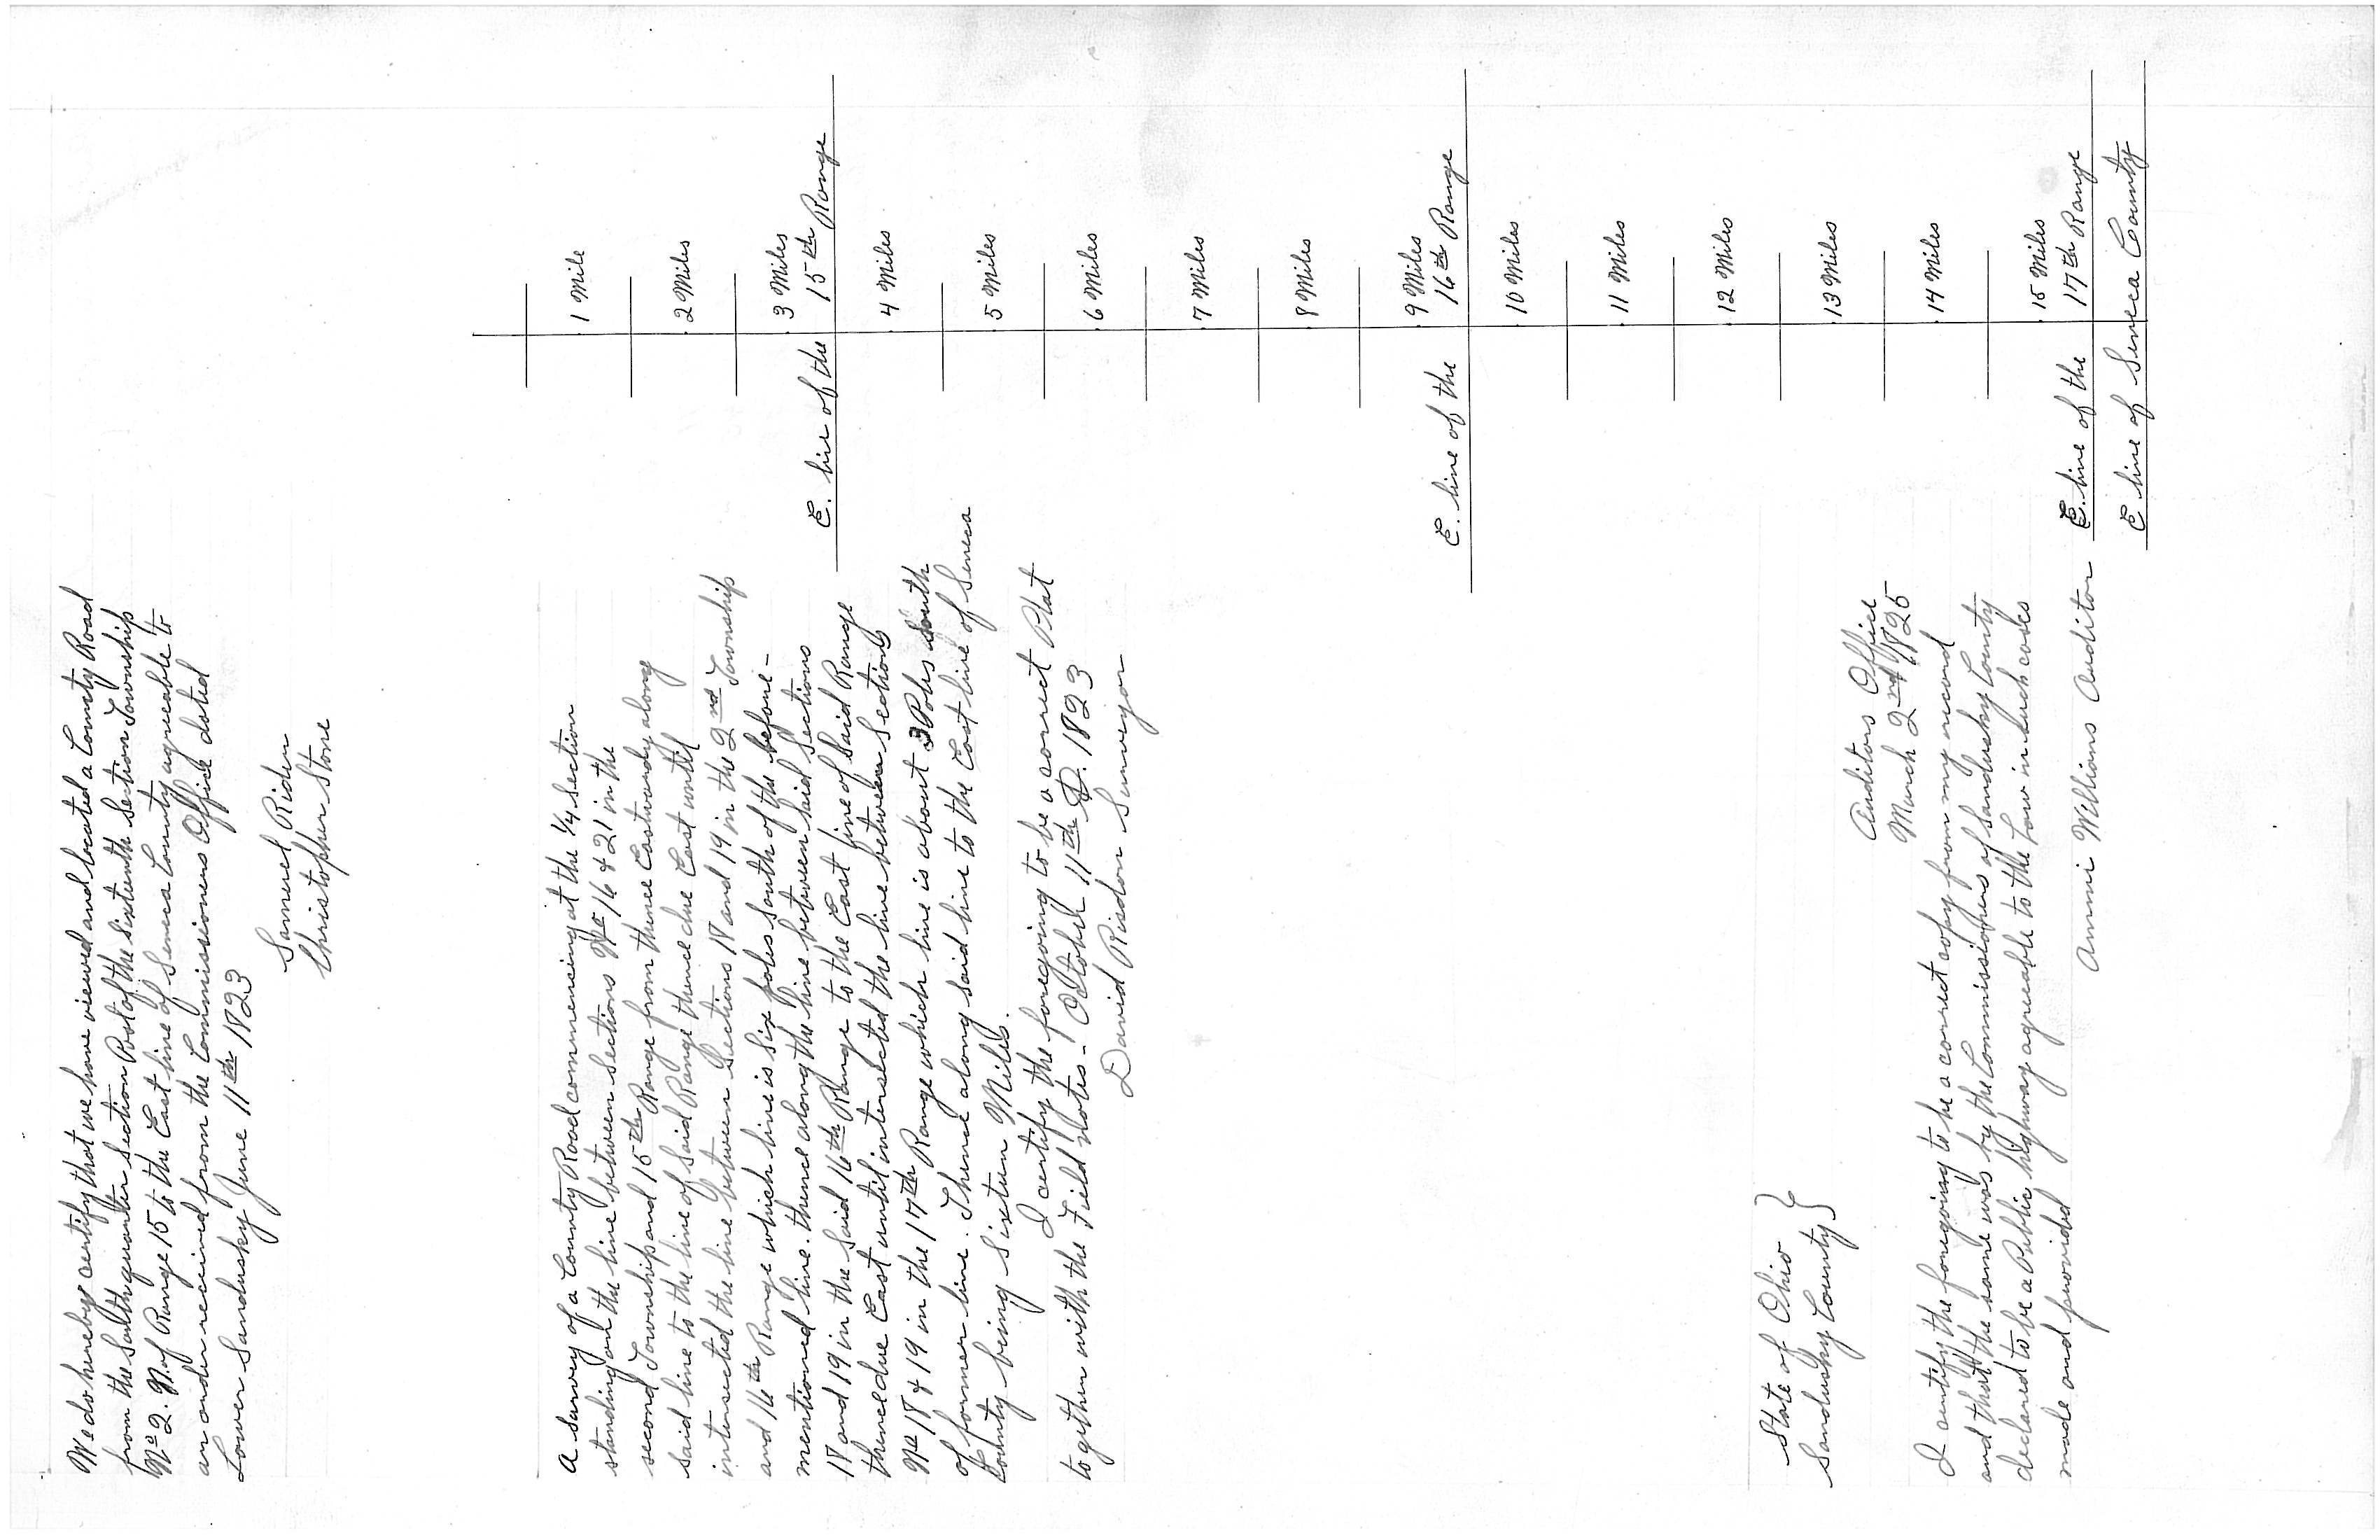 We do hereby certify that we have viewed and located a County Road
from the South quarter section Post of the sixteenth section Township
No 2. N. of Range 15 to the East line of Seneca County agreeable to
an order received from the Commissioners Office dated
Lower Sandusky June 11th 1823
Samuel Rider
Christopher Stone
A survey of a County Road commencing at the 1/4 section
standing on the line between sections No 16 & 21 in the
second Township and 15th Range from thence Eastwardly along
said line to the line of said Range thence due East until
intersected the line between Sections 18 and 19 in the 2nd Township
and 16th Range which line is six poles south of the before-
mentioned line. thence along the line between said sections
18 and 19 in the said 16th Range to the East line of said Range
thence due East until intersected the line between sections
No 18 & 19 in the 17th Range which line is about 3 Poles south
of former line. Thence along said line to the East line of Seneca
County being sixteen Miles.
I certify the foregoing to be a correct Plat
together with the Field Notes - October 11th D. 1823
David Risdon Surveyor
1 Mile
2 Miles
3 Miles
E. line of the 15th Range
4 Miles
5 Miles
6 Miles
7 Miles
8 Miles
9 Miles
E. line of the 16th Range
10 Miles
11 Miles
12 Miles
13 Miles
14 Miles
15 Miles
E. line of the 17th Range
E line of Seneca County
State of Ohio
Sandusky County }
Auditors Office
March 2nd 1825
I certify the foregoing to be a correct copy from my record
and that the same was by the Commissioners of Sandusky County
declared to be a Public highway agreeable to the Law in such cases
made and provided
Ammi Williams Auditor